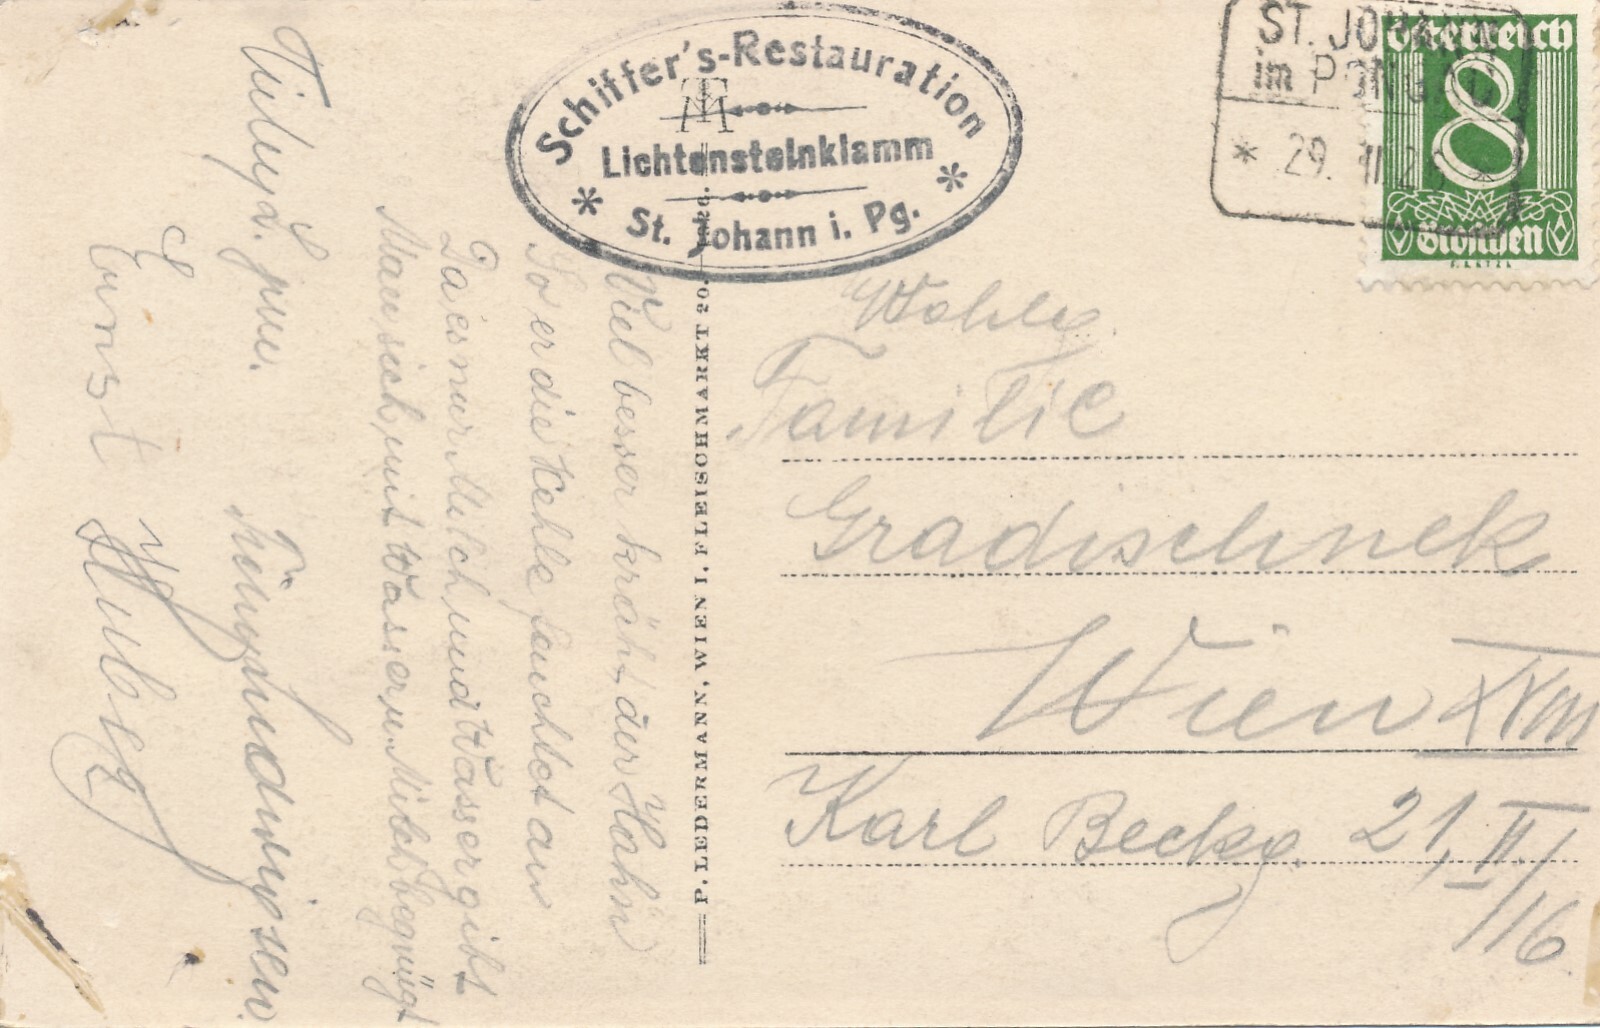 Schiffer's-Restauration
Lichtensteinklamm
* St. Johann i. Pg. *
ST. JOHANN
im PONGAU
* 29.
Österreich
8
Groschen
Wohlg.
Familie
Gradischnek
Wien XVIII
Karl Beckg. 21, II/16
P. LEDERMANN, WIEN I. FLEISCHMARKT 20.
Viel besser kräht der Hahn
So er die Kehle feuchtet an
Da es nur Milch und Wasser gibt
Man sich mit Wasser u. Milch begnügt
jun.
Ernst